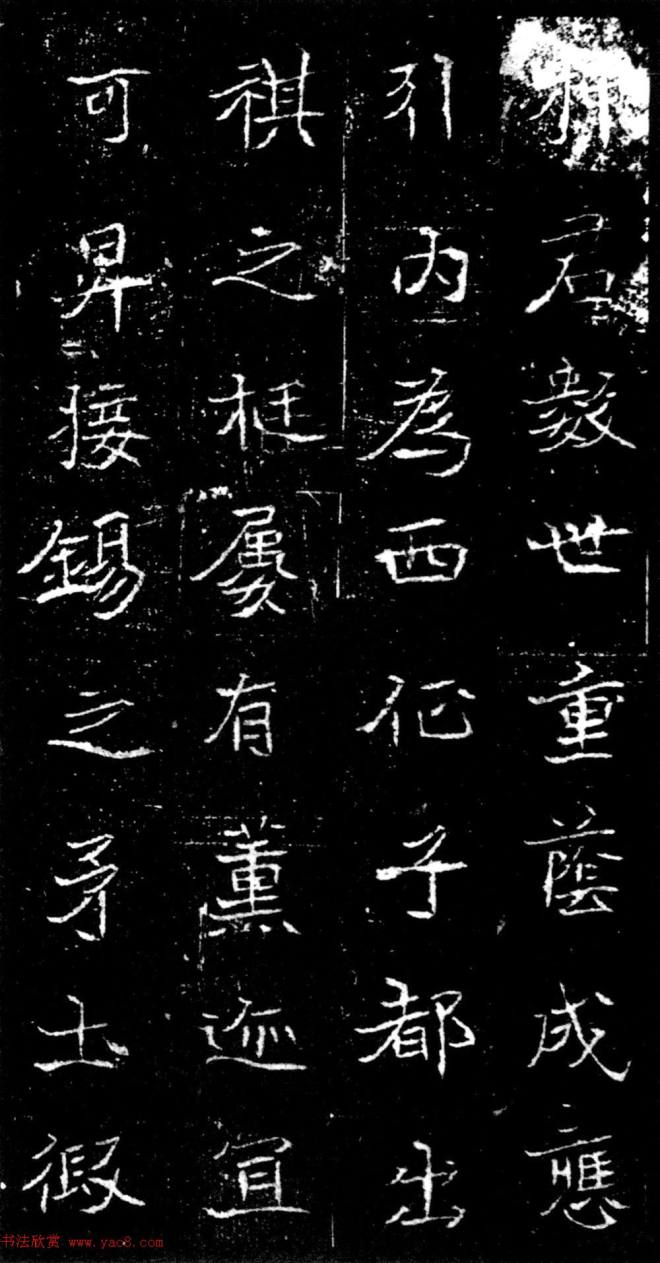 裨君數世重蔭成應
引内為西征子都出
祺之梃屢有薰迹宜
可昇接錫之矛土假
书法欣赏 www.yac8.com